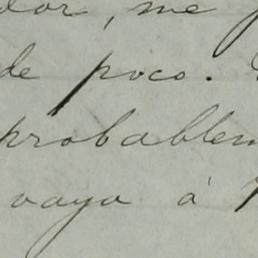 dor, me
de poco.
probablem
vaya á